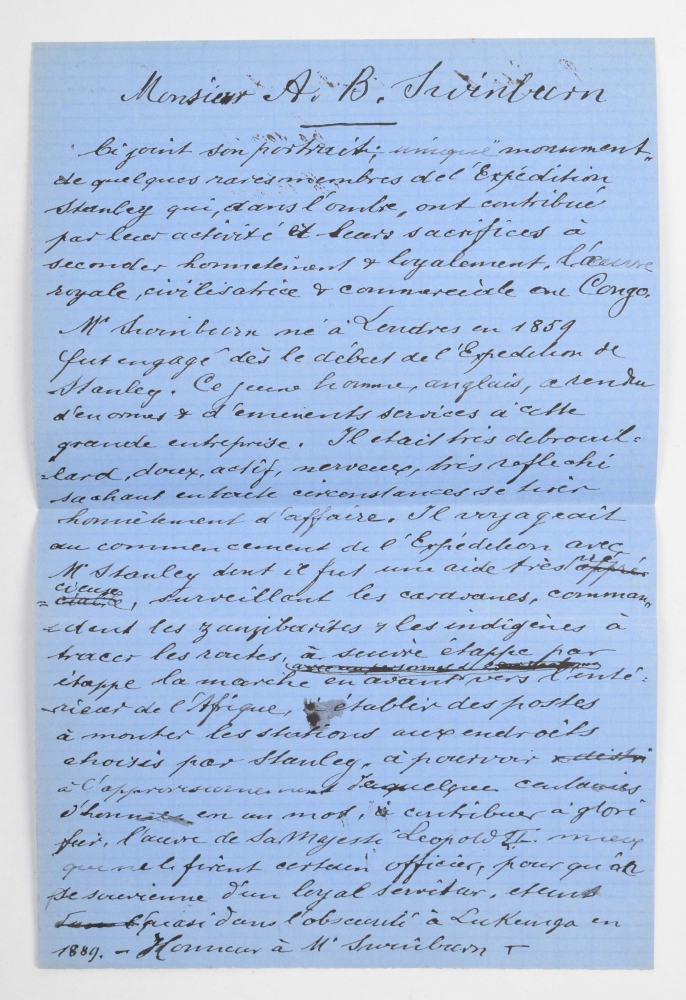 Monsieur A. B. Swinburn
Ci joint son portrait; unique monument
de quelques rares membres de l'Expédition
Stanley qui, dans l'ombre, ont contribué
par leur activité et leurs sacrifices à
seconder honnetement & loyalement, l'œuvre
royale, civilisatrice & commerciale au Congo.
Mr Swinburn né à Londres en 1859
fut engagé dès le début de l'Expedition de
Stanley. Ce jeune homme, anglais, a rendu
d'enormes & d'éminents services à cette
grande entreprise. Il etait très debrouil-
-lard, doux, actif, nerveux, très reflechi
sachant en toute circonstances se tirer
honnètement d'affaire. Il voyageait
au commencement de l'Expédition avec
Mr Stanley dont il fut une aide très pré
cieuse, surveillant les caravanes, comman-
-dant les zanzibarites & les indigènes à
tracer les routes, à suivre étappe par
étappe la marche en avant vers l'inté-
-rieur de l'Afrique, à établir des postes
à monter les stations aux endroits
choisis par Stanley, à pourvoir
à l'approvisionnement de quelque centaines
d'hommes en un mot, à contribuer à glori
fier, l'œuvre de Sa Majesté Leopold II mieux
que ne le firent certain officier, pour qu'on
se souvienne d'un loyal servitur,
quasi dans l'obscurité à Lukunga en
1889. — Honneur à Mr Swinburn